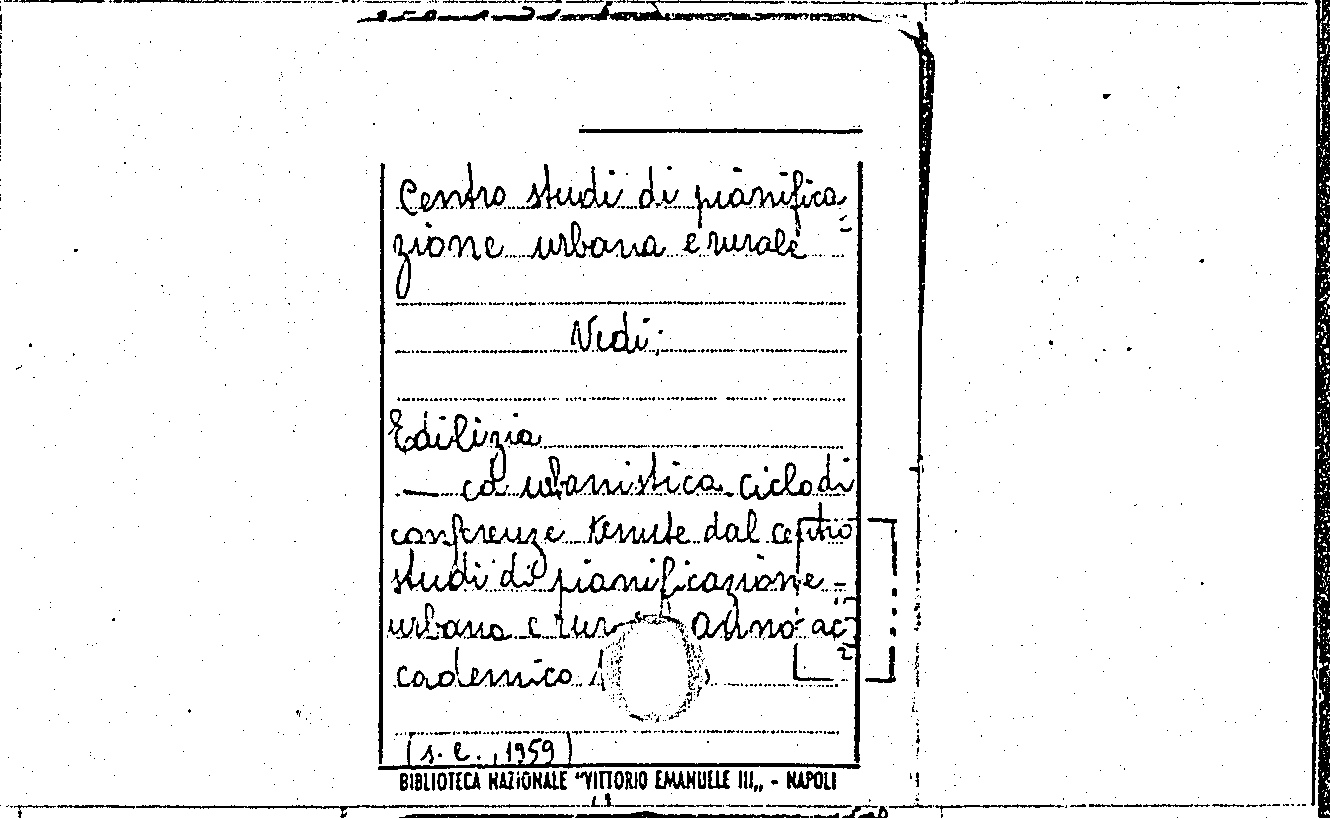 Centro studi di pianifica=
zione urbana e rurale
Vedi:
Edilizia
— ed urbanistica. Ciclo di
conferenze tenute dal centro
studi di pianificazione
urbana e anno ac=
cademico
(s. l., 1959)
BIBLIOTECA NAZIONALE "VITTORIO EMANUELE III„ - NAPOLI